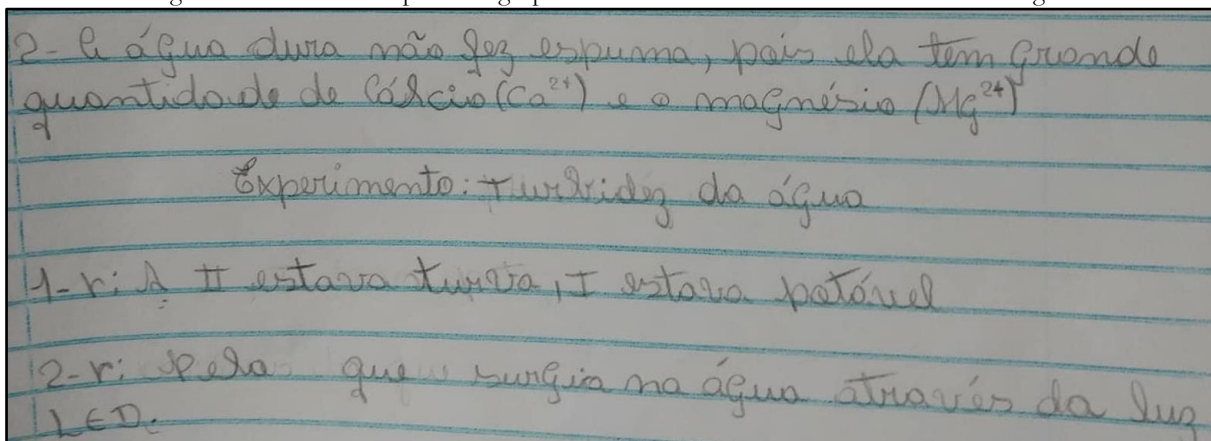 2- A água dura não fez espuma, pois ela tem grande
quantidade de Cálcio (Ca²⁺) e o magnésio (Mg²⁺)
Experimento: turbidez da água
1-r: A II estava turva, I estava potável
2-r: Pela que surgia na água através da luz
LED.